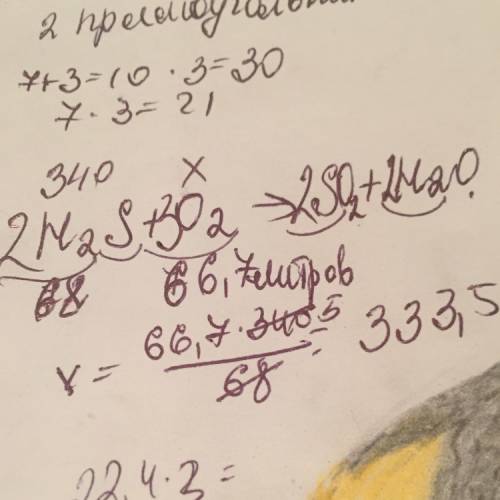 2 прямоугольни
7+3=10 · 3=30
7 · 3=21
340 X
2H₂S+3O₂ → 2SO₂+2H₂O.
68 66,7литров
x = 66,7 · 340 5 / 68 = 333,5
22,4·3=